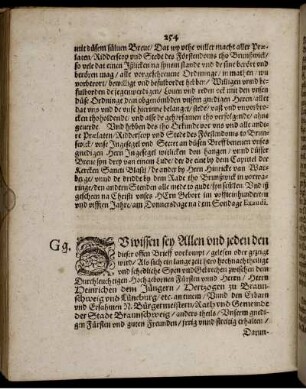 254
mit düsem sülven Breve / Dat wy othe vuller macht aller Pre-
laten / Ridderscop vnd Stede des Förstendoms tho Brunswick /
so vele dat einen Jßlicken na synem stande vnd de süne berört vnd
beröhren mag / alle vorgeschrevene Ordninge / in maten / wu
vorberört / bewilliget vnd befulbordet hebben / Willigen vnd be-
fulborden de jegenwerdigen / Loven vnd reden ock mit den vnsen
düsse Ordninge dem obgenömbden vnsen gnedigen Heren / allet
dat vns vnd de vnse hierinne belanget / stede / vast vnd vnvorbro-
cken thoholdende / vnd alse de gehorsamen tho vorfolgende / ahne
geverde. Vnd hebben des tho Orkunde vor vns vnd alle ande-
re Prelaten / Ridderscop vnd Stede des Förstendoms to Brun-
swick / vnse Ingesegel vnd Steten an düssen Breff beneven vnses
gnedigen Heren Ingesegel wetlicken don hangen / vnd düsser
Breve syn drey van einem Lude / der de eint by dem Capittel der
Kercken Sancti Blasii / de ander by Heren Hinrick van
vnd de dridde by dem Rade tho Brunswick in verwa-
ringe / den andern Stenden alle mede to gude / syn schölen. Vnd iß
geschehn na Christi vnses HErn Gebort im voftein hundersten
vnd vifften Jahre / am Donnersdage na dem Sondage Exaudi.
Gg. ZV wissen sey Allen vnd jeden den
dieser offen Brieff vorkompt / gelesen oder gezeigt
wird / Als sich ein lange zeit hero hochnachtheilige
vnd schedliche Spen vnd Gebrechen zwischen dem
Durchleuchtigen Hochgebornen Fürsten vnnd Herrn / Herrn
Heinrichen dem Jüngern / Hertzogen zu Braun-
schweig vnd Lüneburg / etc. an einem / Vnnd den Erbarn
vnd Ersahmen N. Bürgermeistern / Rath vnd Gemeinde
der Stadt Braunschweig / anders theils / Vnserm gnedi-
gen Fürsten vnd guten Freunden / jerig vnnd streitig erhalten /
Darun-